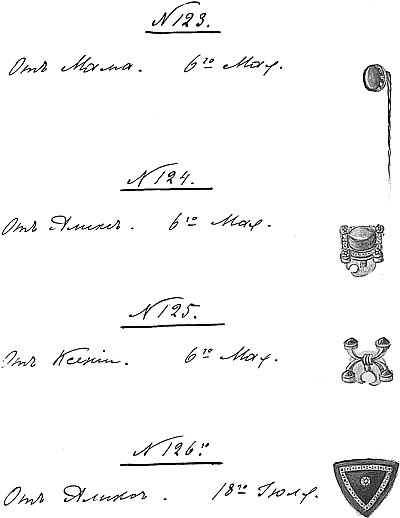 N 123.
Отъ Мама. 6го Мая.
N 124.
Отъ Аликсъ. 6го Мая.
N 125.
Отъ Ксеніи. 6го Мая.
N 126го
Отъ Аликсъ. 18го Іюля.